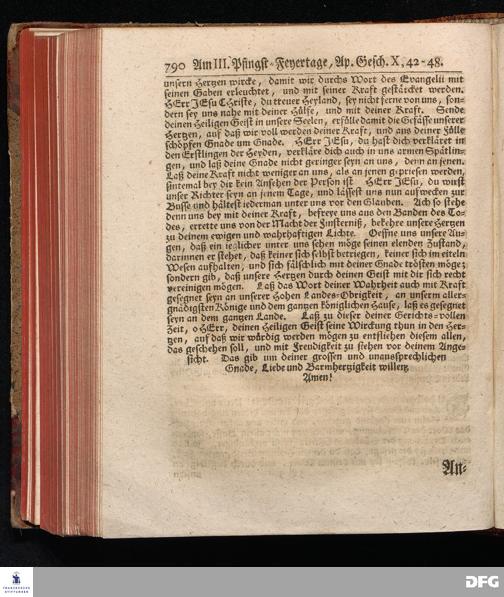 790 Am III. Pfingst-Feyertage, Ap. Gesch. X, 42-48.
unsern Hertzen wircke, damit wir durchs Wort des Evangelii mit
seinen Gaben erleuchtet, und mit seiner Kraft gestärcket werden.
HErr JEsu Christe, du treuer Heyland, sey nicht ferne von uns, son-
dern sey uns nahe mit deiner Hülfe, und mit deiner Kraft. Sende
deinen Heiligen Geist in unsere Seelen, erfülle damit die Gefässe unserer
Hertzen, auf daß wir voll werden deiner Kraft, und aus deiner Fülle
schöpfen Gnade um Gnade. HErr JEsu, du hast dich verkläret in
den Erstlingen der Heyden, verkläre dich auch in uns armen Spätlin-
gen, und laß deine Gnade nicht geringer seyn an uns, denn an jenen.
Laß deine Kraft nicht weniger an uns, als an jenen gepriesen werden,
sintemal bey dir kein Ansehen der Person ist HErr JEsu, du wirst
unser Richter seyn an jenem Tage, und lässest uns nun aufwecken zur
Busse und hältest iederman unter uns vor den Glauben. Ach so stehe
denn uns bey mit deiner Kraft, befreye uns aus den Banden des To-
des, errette uns von der Macht der Finsterniß, bekehre unsere Hertzen
zu deinem ewigen und wahrhaftigen Lichte. Oeffne uns unsere Au-
gen, daß ein ieglicher unter uns sehen möge seinen elenden Zustand,
darinnen er stehet, daß keiner sich selbst betriegen, keiner sich im eiteln
Wesen aufhalten, und sich fälschlich mit deiner Gnade trösten möge;
sondern gib, daß unsere Hertzen durch deinen Geist mit dir sich recht
vereinigen mögen. Laß das Wort deiner Wahrheit auch mit Kraft
gesegnet seyn an unserer Hohen Landes-Obrigkeit, an unserm aller-
gnädigsten Könige und dem gantzen königlichen Hause, laß es gesegnet
seyn an dem gantzen Lande. Laß zu dieser deiner Gerichts-vollen
Zeit, o HErr, deinen Heiligen Geist seine Wirckung thun in den Her-
tzen, auf daß wir würdig werden mögen zu entfliehen diesem allen,
das geschehen soll, und mit Freudigkeit zu stehen vor deinem Ange-
sicht. Das gib um deiner grossen und unaussprechlichen
Gnade, Liebe und Barmhertzigkeit willen,
Amen!
An-
FRANCKESCHE
STIFTUNGEN
DFG